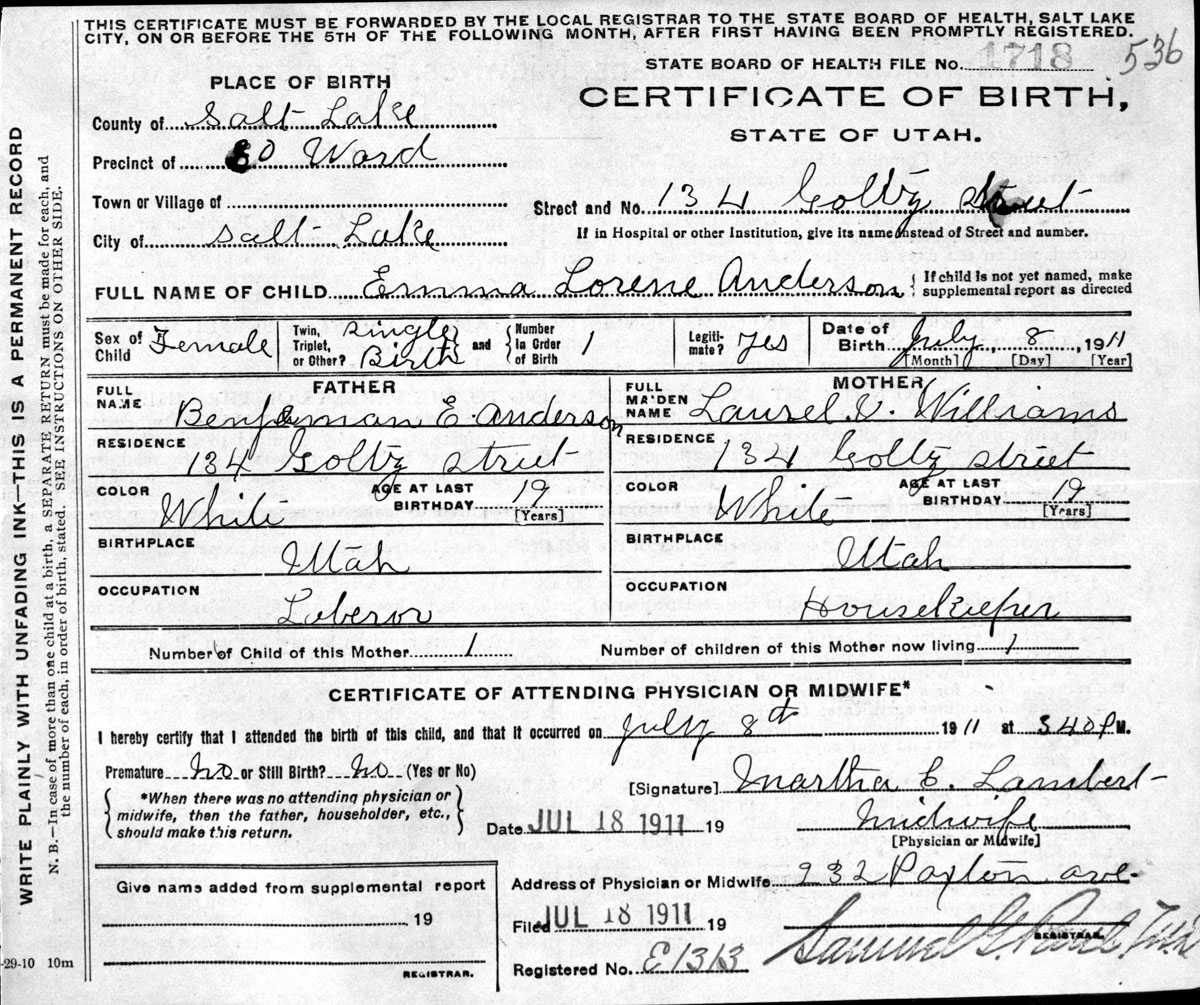 THIS CERTIFICATE MUST BE FORWARDED BY THE LOCAL REGISTRAR TO THE STATE BOARD OF HEALTH, SALT LAKE
CITY, ON OR BEFORE THE 5TH OF THE FOLLOWING MONTH, AFTER FIRST HAVING BEEN PROMPTLY REGISTERED.
STATE BOARD OF HEALTH FILE No. 1718 536
PLACE OF BIRTH
CERTIFICATE OF BIRTH,
STATE OF UTAH.
County of Salt Lake
Precinct of Ward
Town or Village of
Street and No. 134 Goltz Street
City of Salt Lake
If in Hospital or other Institution, give its name instead of Street and number.
FULL NAME OF CHILD Emma Lorene Anderson { If child is not yet named, make supplemental report as directed
Sex of Child Female Twin, Triplet, or Other? Single Birth and Number In Order of Birth 1 Legitimate? Yes Date of Birth July 8, 1911
[Month] [Day] [Year]
FATHER
FULL NAME Benjaman E. Anderson
RESIDENCE 134 Goltz street
COLOR White AGE AT LAST BIRTHDAY 19 [Years]
BIRTHPLACE Utah
OCCUPATION Laberor
MOTHER
FULL MAIDEN NAME Laurel V. Williams
RESIDENCE 134 Goltz street
COLOR White AGE AT LAST BIRTHDAY 19 [Years]
BIRTHPLACE Utah
OCCUPATION Housekeeper
Number of Child of this Mother 1 Number of children of this Mother now living 1
CERTIFICATE OF ATTENDING PHYSICIAN OR MIDWIFE*
I hereby certify that I attended the birth of this child, and that it occurred on July 8th 1911 at 340 P M.
Premature No or Still Birth? No (Yes or No)
*When there was no attending physician or
midwife, then the father, householder, etc.,
should make this return.
[Signature] Martha C. Lambert
Date JUL 18 1911 19
Midwife
[Physician or Midwife]
Give name added from supplemental report
19
REGISTRAR.
Address of Physician or Midwife 232 Paxton ave.
Filed JUL 18 1911 19
Samuel G. Paul
REGISTRAR.
Registered No. E1313
WRITE PLAINLY WITH UNFADING INK—THIS IS A PERMANENT RECORD
N. B.—In case of more than one child at a birth, a SEPARATE RETURN must be made for each, and
the number of each, in order of birth, stated. SEE INSTRUCTIONS ON OTHER SIDE.
-29-10 10m